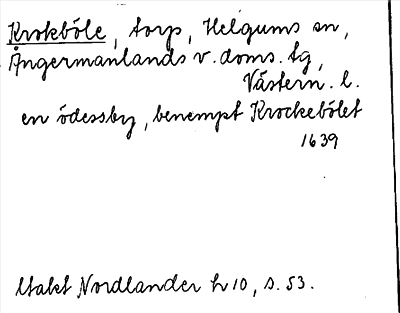 Krokböle, torp, Helgums sn,
Ångermanlands v. doms. tg,
Västern. l.
en ödessby, benempt Krockebölet
1639
Nordlander h 10, s. 53.